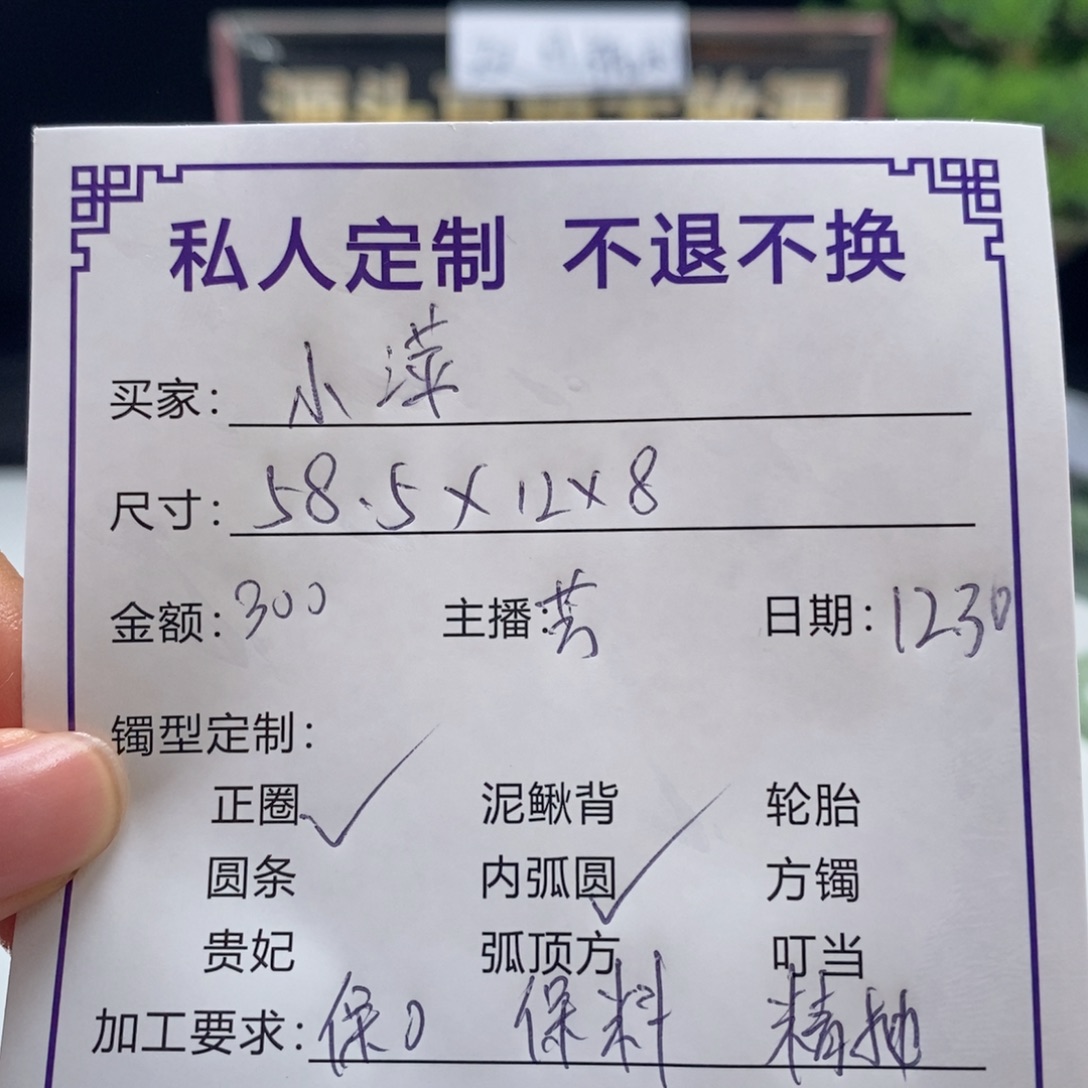 私人定制 不退不换
买家: 小萍
尺寸: 58.5×12×8
金额: 300 主播: 芳 日期: 1230
镯型定制:
正圈✓ 泥鳅背 轮胎
圆条 内弧圆✓ 方镯
贵妃 弧顶方 叮当
加工要求: 保口 保料 精抛